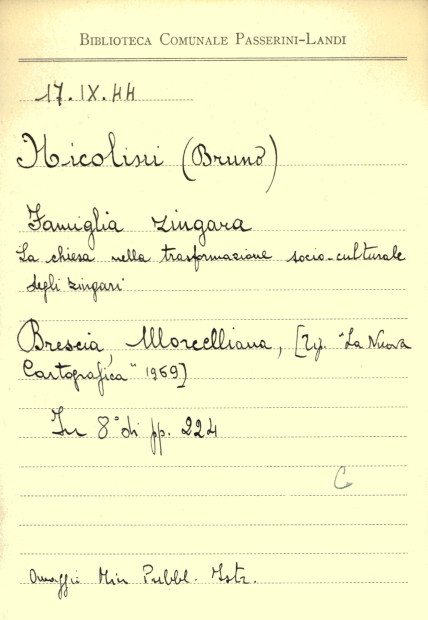 BIBLIOTECA COMUNALE PASSERINI-LANDI
17.IX.44
Nicolini (Bruno)
Famiglia zingara
La chiesa nella trasformazione socio-culturale
degli zingari
Brescia, Morcelliana, [Tip. "La Nuova
Cartografica" 1969]
In 8° di pp. 224
C
Omaggio Min Pubbl. Istr.